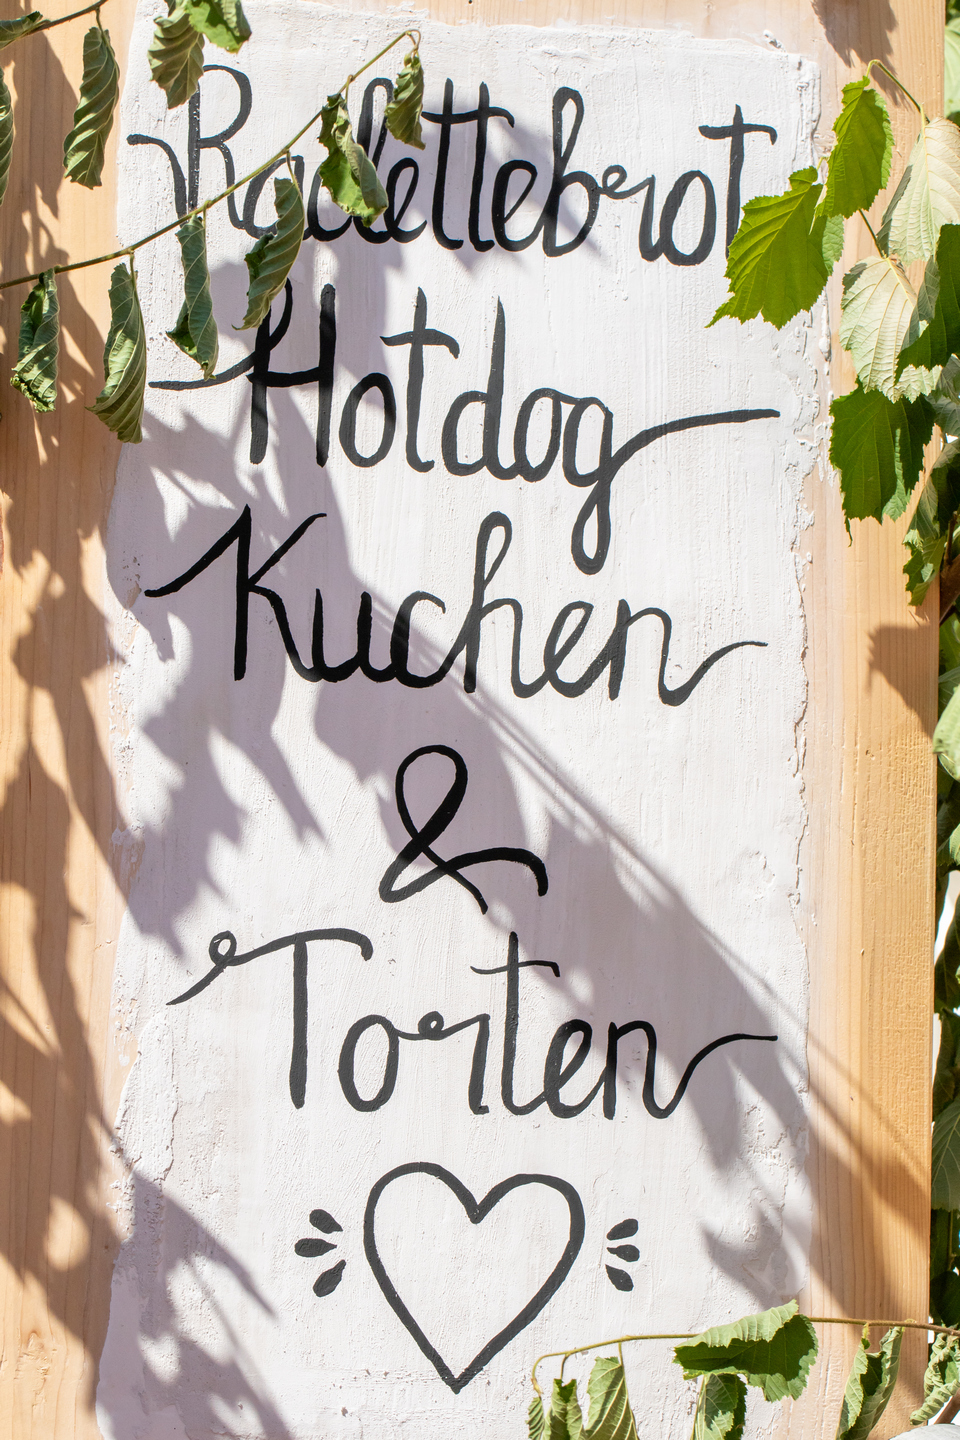 Raclettebrot
Hotdog
Kuchen
&
Torten